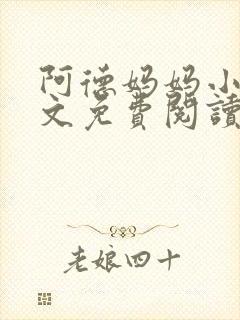 阿德妈妈小
文免費閱讀
老娘四十